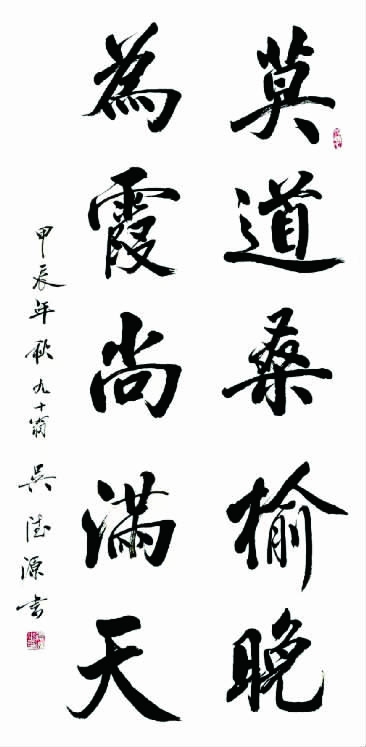 莫道桑榆晚
為霞尚滿天
甲辰年秋九十翁 吴陆源書